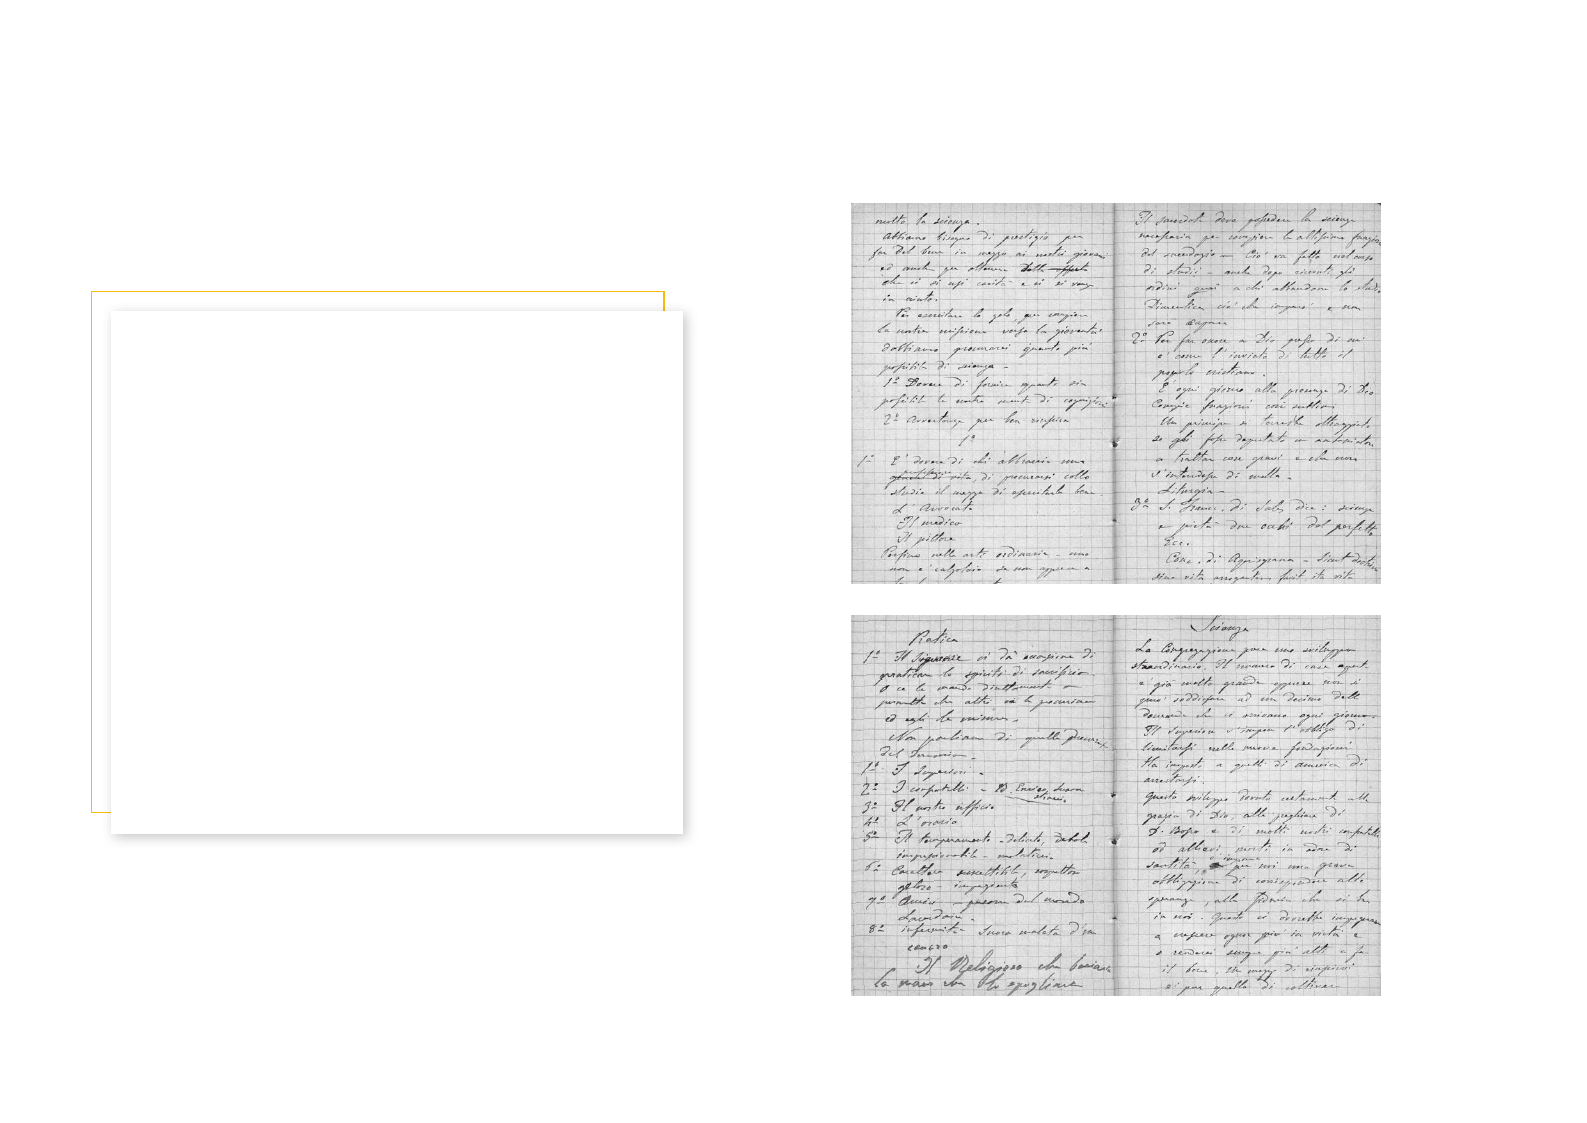 molto la scienza.
Abbiamo bisogno di prestigio per
far del bene in mezzo ai nostri giovani
ed anche per ottenere delle offerte
che ci si usi carità e ci si venga
in aiuto.
Per esercitare lo zelo, per compiere
la nostra missione verso la gioventù
dobbiamo procurarci quanto più
possibile di scienza -
1º Dovere di fornire quanto sia
possibile la nostra mente di cognizioni
2º Avvertenze per ben riuscire
1º
1º E' dovere di chi abbraccia una
professione
di vita, di procurarsi collo
studio il mezzo di esercitarla bene.
L' Avvocato
Il medico
Il pittore
Perfino nelle arti ordinarie - uno
non è calzolaio se non apprese a
Il sacerdote deve possedere la scienza
necessaria per compiere le altissime funzioni
del sacerdozio - Ciò va fatto nel corso
di studii - anche dopo ricevuti gli
ordini guai a chi abbandona lo studio
Dimentica ciò che imparò e non
sarà capace
2º Per far onore a Dio presso di cui
è come l' inviato di tutto il
popolo cristiano.
E' ogni giorno alla presenza di Dio
Compie funzioni così sublimi
Un principe si terrebbe oltraggiato
se gli fosse deputato un ambasciatore
a trattar cose gravi e che non
s'intendesse di nulla -
Liturgia -
3º S. Franc. di Sales dice: scienza
e pietà due occhi del perfetto
Ecc.
Conc. di Aquisgrana - Sicut doctrina
sine vita arrogantem facit, ita vita
Pratica
1º Il Signore ci dà occasione di
praticare lo spirito di sacrificio
O ce le manda direttamente o
permette che altri ce le procurino
ed egli le misura.
Non parliamo di quelle
del Demonio.
1º I Superiori.
2º I confratelli - B. Enrico Susone
3º Il nostro ufficio
4º L' orario
5º Il temperamento - delicato, debole
impressionabile - malaticcio
6º Carattere suscettibile, sospettoso
geloso - impaziente
7º Amici - persone del mondo
Lacordaire.
8º infermità Suora malata d'un
cancro
Il Religioso che bacia
la mano che lo spogliava
Scienza
La Congregazione prese uno sviluppo
straordinario. Il numero di case aperte
è già molto grande eppure non si
può soddisfare ad un decimo delle
domande che ci arrivano ogni giorno.
Il Superiore s'impose l'obbligo di
limitarsi nelle nuove fondazioni
Ha imposto a quelli di America di
arrestarsi.
Questo sviluppo dovuto certamente alla
grazia di Dio, alle preghiere di
D. Bosco e di molti nostri confratelli
ed allievi morti in odore di
santità, impone per noi una grave
obbligazione di corrispondere alle
speranze, alla fiducia che si ha
in noi. Questo ci dovrebbe impegnare
a crescere ognor più in virtù e
a renderci sempre più atti a fare
il bene. Un mezzo di riuscirvi
è pur quello di coltivare